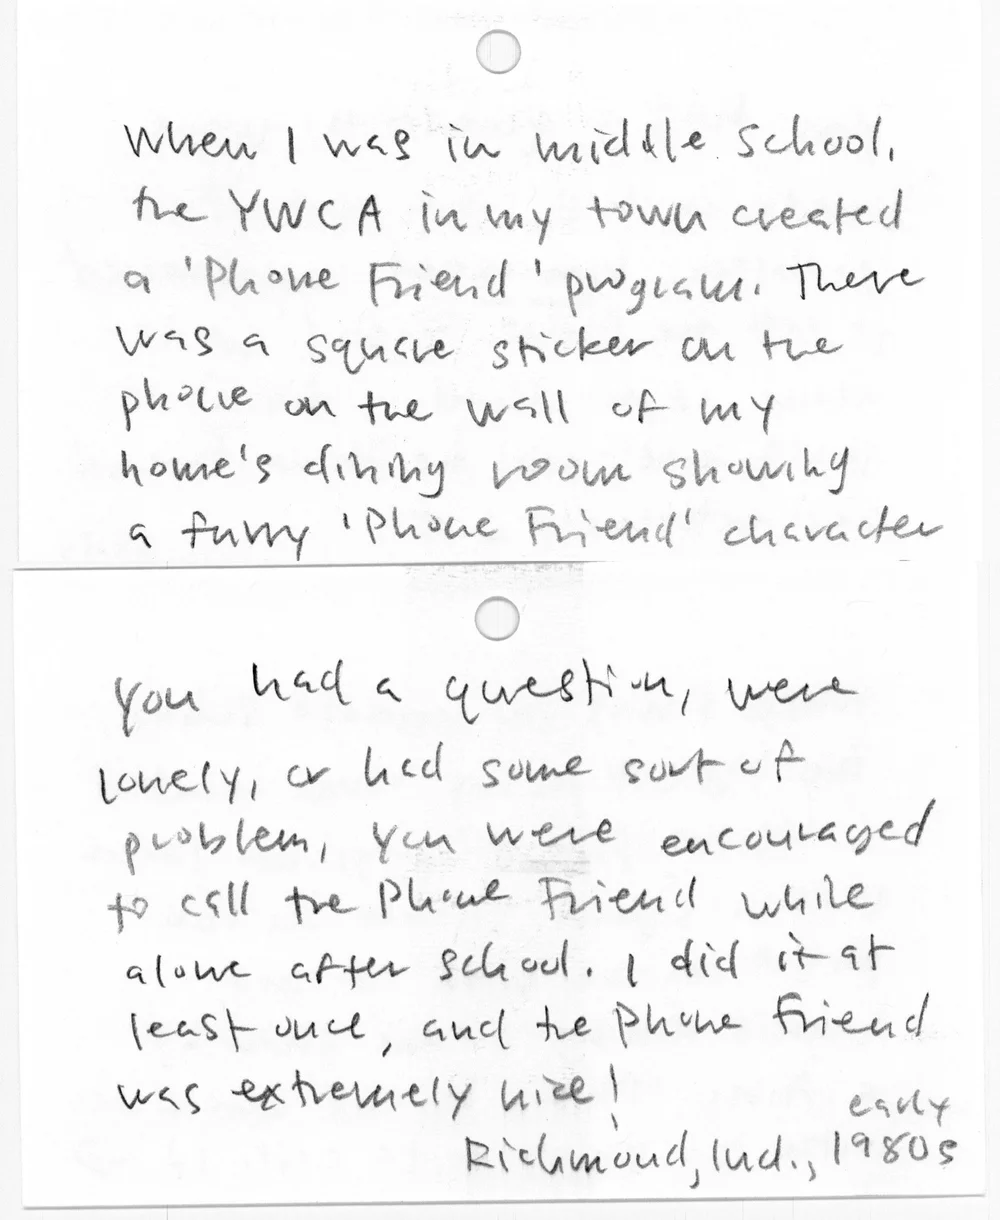 When I was in middle school,
the YWCA in my town created
a 'Phone Friend' program. There
was a square sticker on the
phone on the wall of my
home's dining room showing
a furry 'Phone Friend' character
you had a question, were
lonely, or had some sort of
problem, you were encouraged
to call the Phone Friend while
alone after school. I did it at
least once, and the Phone Friend
was extremely nice!
early
Richmond, Ind., 1980s